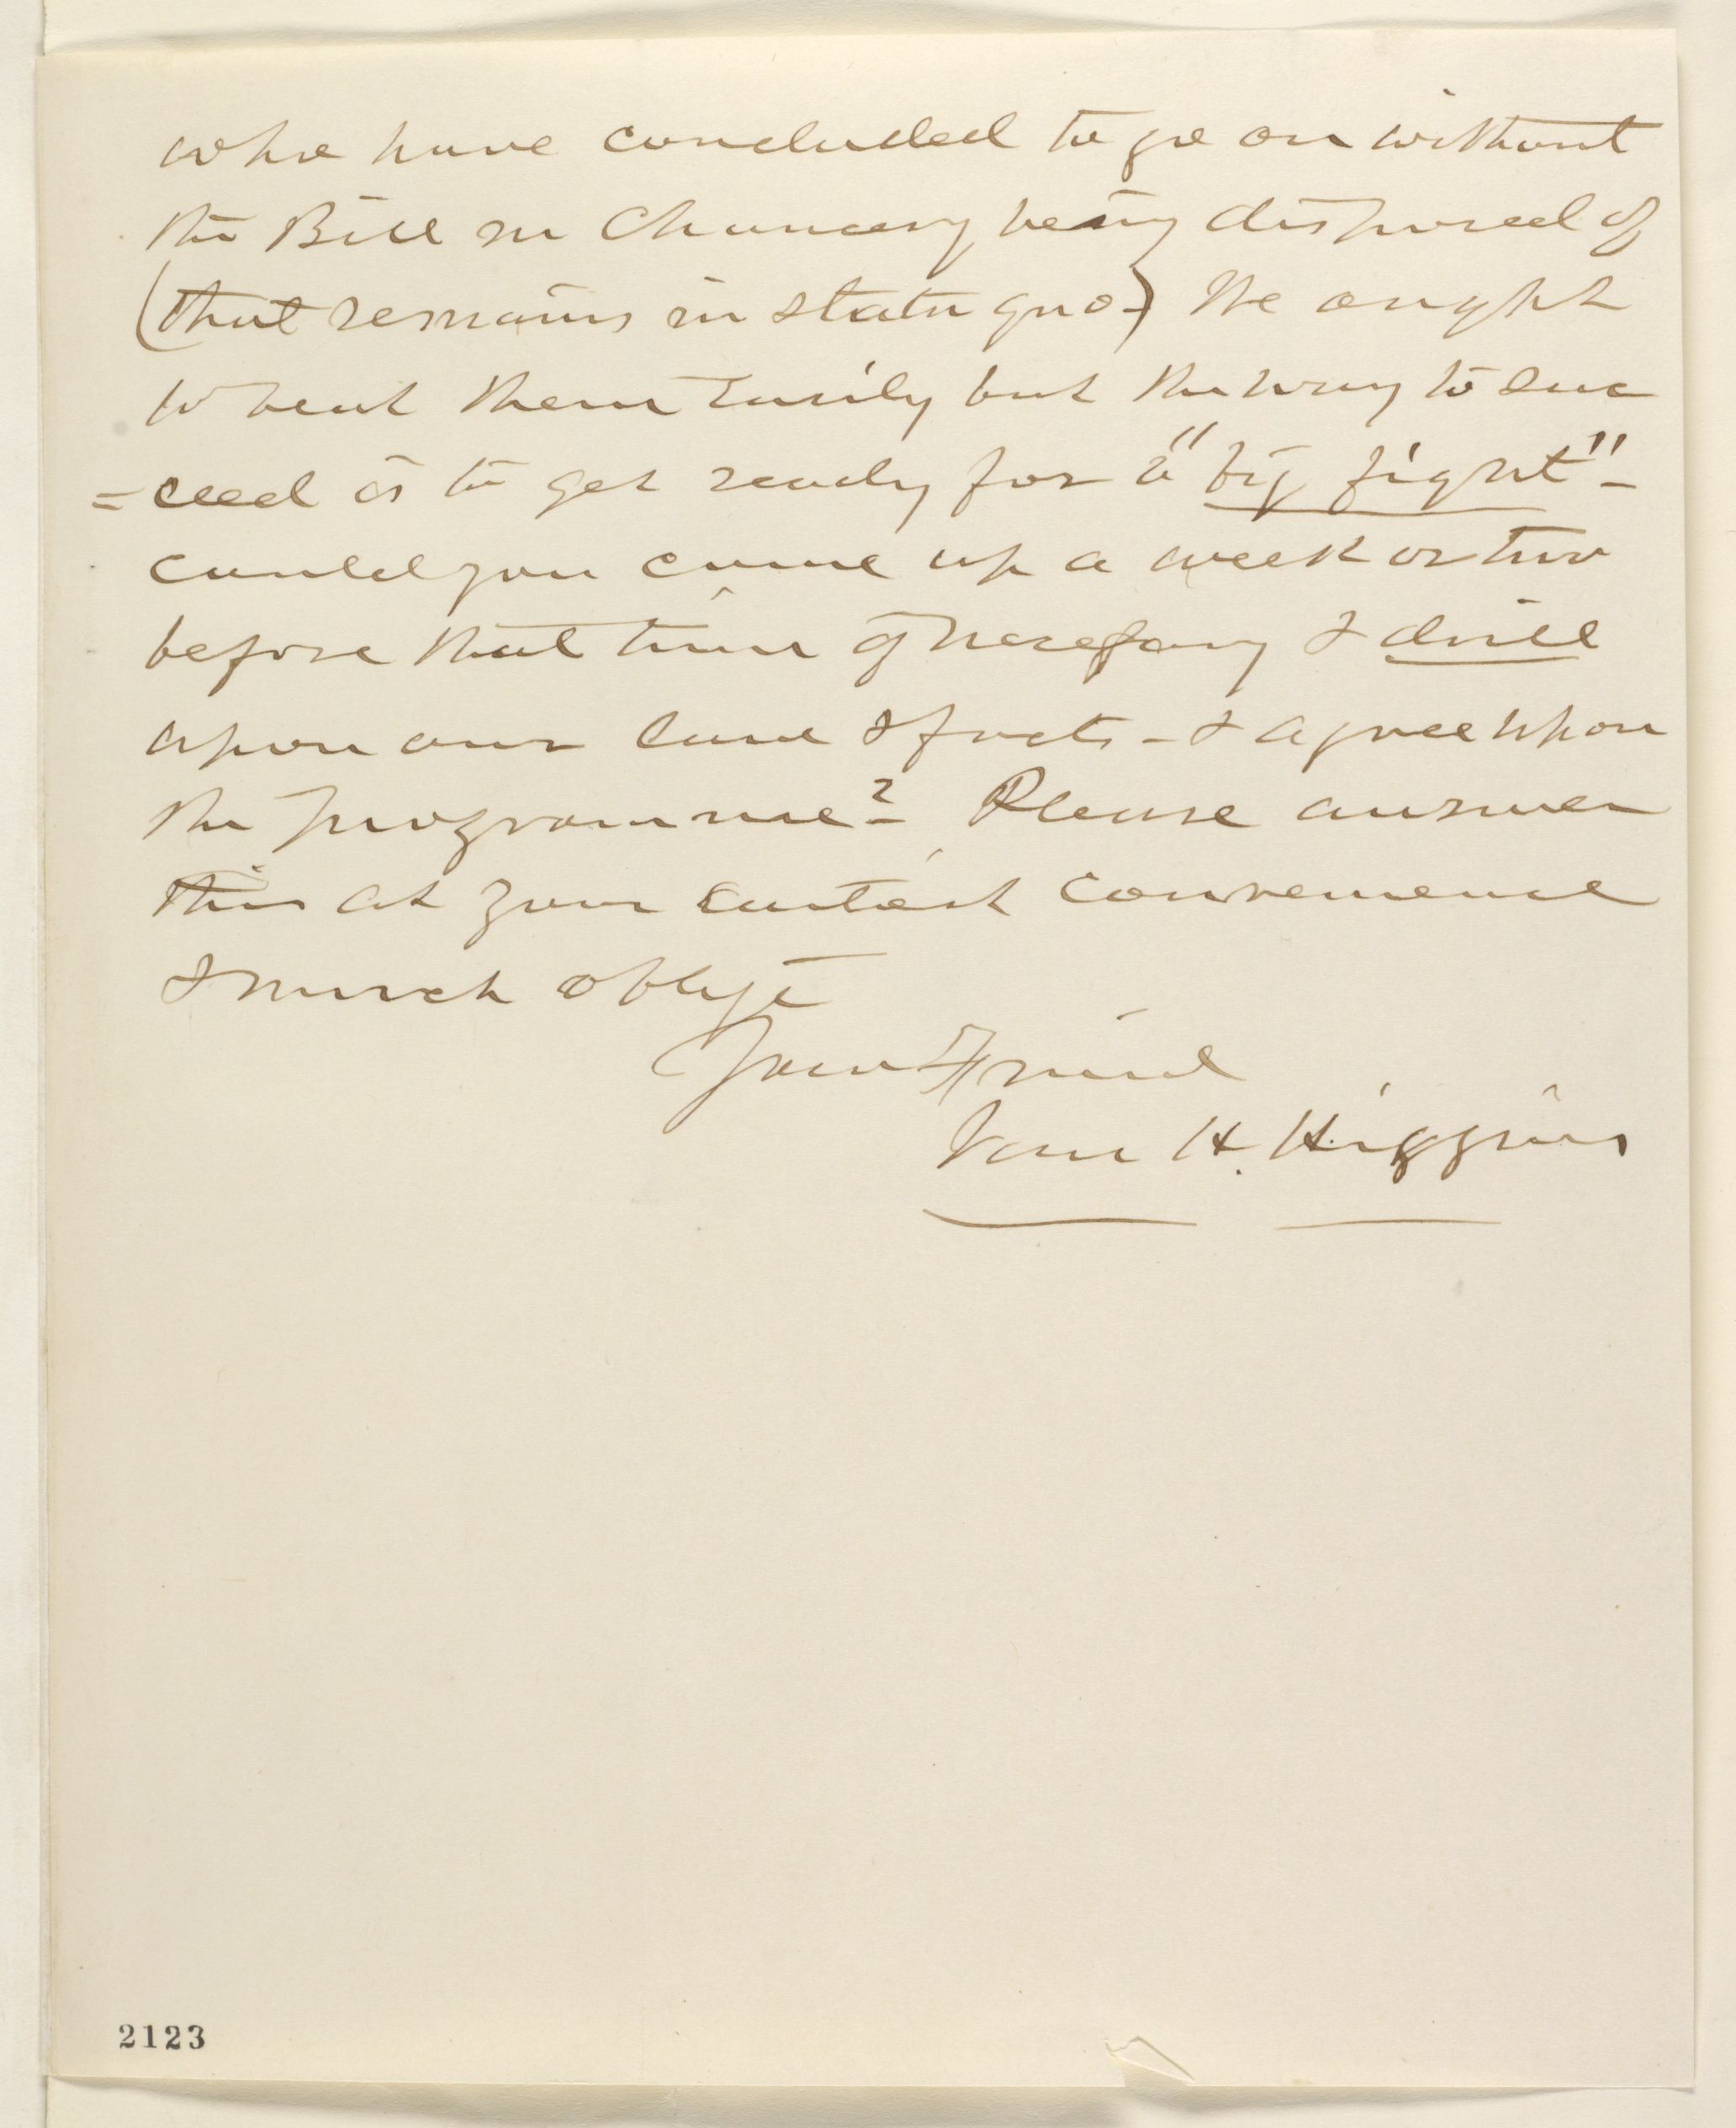 who have concluded to go on without
this Bill in Chancery being disposed of
(that remains in statu quo-) We ought
to beat them easily but the way to suc
=ceed is to get ready for a "big fight" -
could you come up a week or two
before that time if necessary & drill
upon our law & facts - & agree upon
the programme? - Please answer
this at your earliest convenience
& much oblige
Your Friend
Van H. Higgins
2123